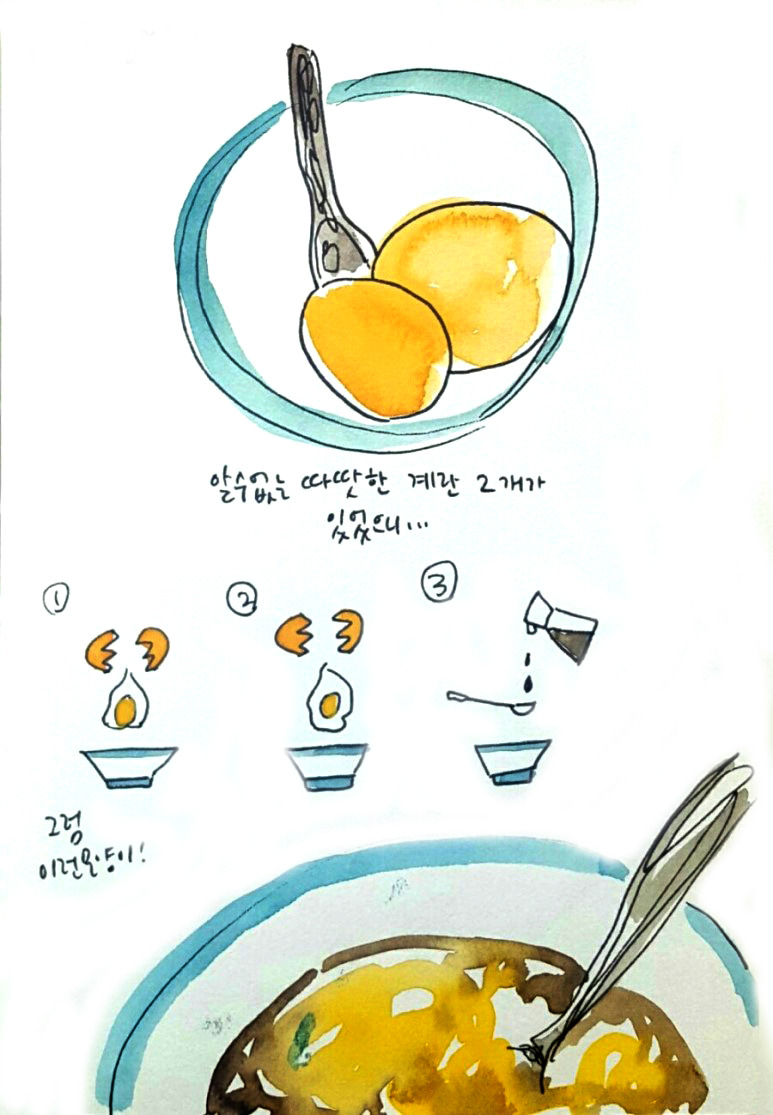 알수없는 따땃한 계란 2개가
있었으니...
① ② ③
그럼
이런모양이!